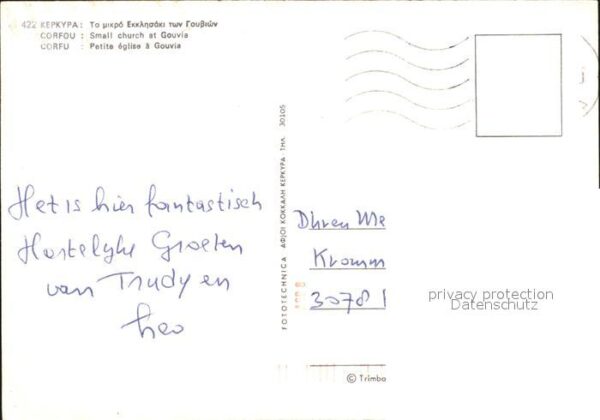 422 ΚΕΡΚΥΡΑ: Το μικρό Εκκλησάκι των Γουβιών
CORFOU : Small church at Gouvia
CORFU : Petite église à Gouvia
Het is hier fantastisch
Hartelijke Groeten
van Trudy en
Leo
FOTOTECHNICA ΑΦΙΟΙ ΚΟΚΚΑΛΗ ΚΕΡΚΥΡΑ ΤΗΛ. 30105
Kromm
3078
privacy protection
Datenschutz
© Trimbo